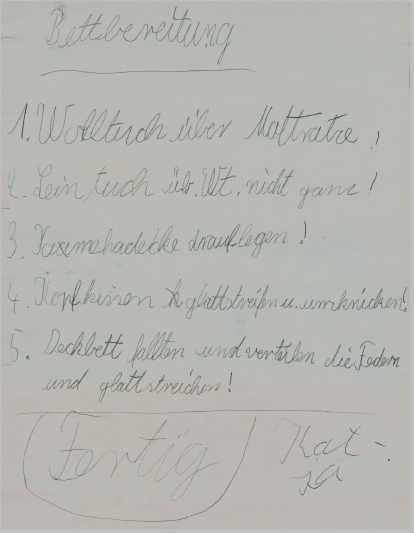 Bettbereitung
1. Wolltuch über Mattratze!
2. Leintuch üb. Wt. nicht ganz!
3. drauflegen!
4. Kopfkissen glattstreifen u. umknicken!
5. Deckbett falten und verteilen die Federn
und glattstreichen!
Fertig
Kat-
ja